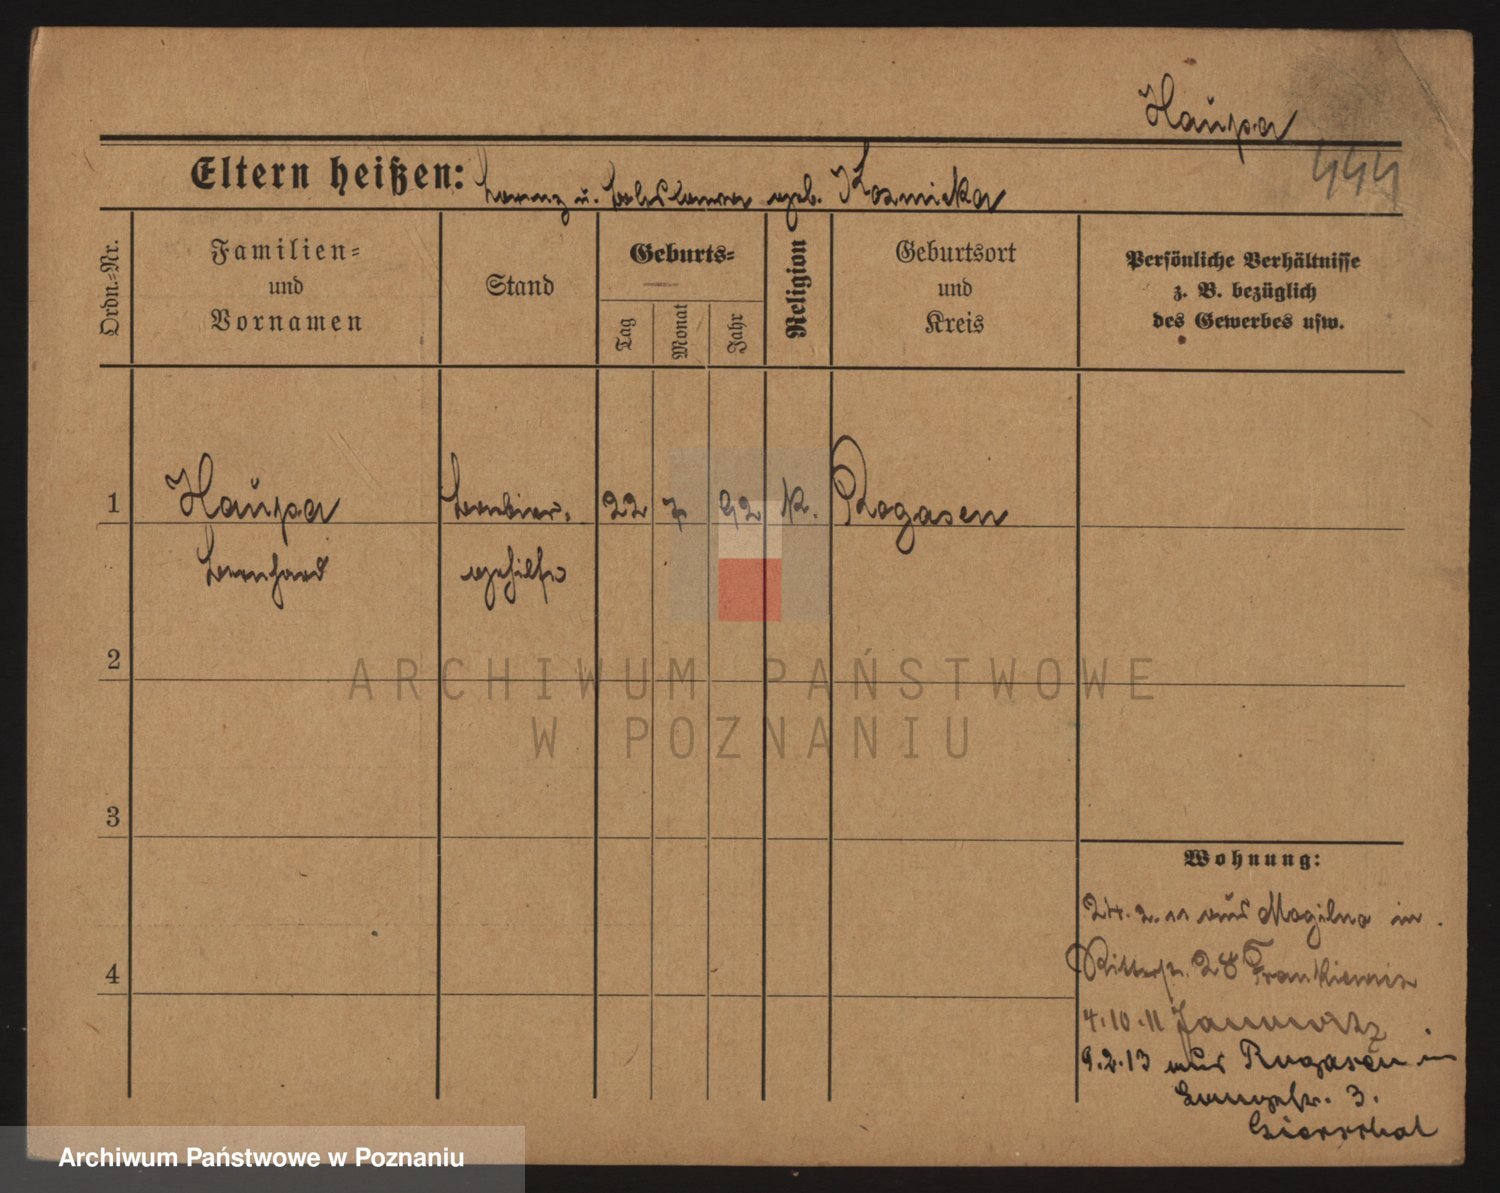 Haupa
444
Eltern heißen: Lorenz u. geb. Kozmicka
Ordn.=Nr.
Familien=
und
Vornamen
Stand
Geburts=
Tag
Monat
Jahr
Religion
Geburtsort
und
Kreis
Persönliche Verhältnisse
z. B. bezüglich
des Gewerbes usw.
1 Haupa Barbier- 22 7 92 K. Rogasen
Bernhard gehilfe
2
3
4
Wohnung:
24.2.11 aus Mogilno in
Ritterstr. 28 Frankiewicz
4.10.11 Janowitz
9.2.13 aus Rogasen in
Langestr. 3.
ARCHIWUM PAŃSTWOWE
W POZNANIU
Archiwum Państwowe w Poznaniu